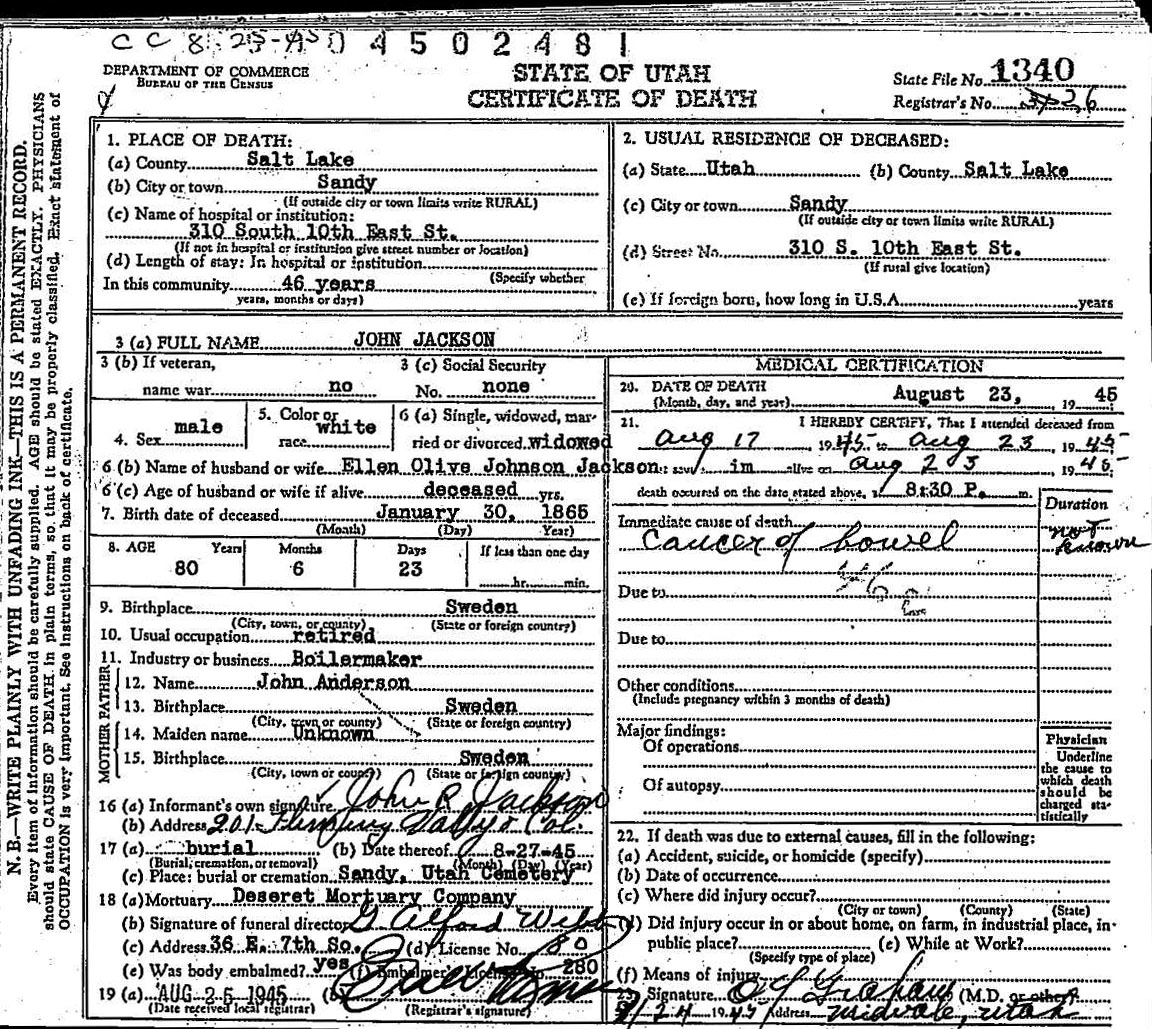 CC 8-25-45 0 4 5 0 2 4 8 1
DEPARTMENT OF COMMERCE
BUREAU OF THE CENSUS
STATE OF UTAH
CERTIFICATE OF DEATH
State File No. 1340
Registrar's No. 26
N. B.—WRITE PLAINLY WITH UNFADING INK—THIS IS A PERMANENT RECORD.
Every item of information should be carefully supplied. AGE should be stated EXACTLY. PHYSICIANS
should state CAUSE OF DEATH in plain terms, so that it may be properly classified. Exact statement of
OCCUPATION is very important. See instructions on back of certificate.
1. PLACE OF DEATH:
(a) County Salt Lake
(b) City or town Sandy
(If outside city or town limits write RURAL)
(c) Name of hospital or institution:
310 South 10th East St.
(If not in hospital or institution give street number or location)
(d) Length of stay: In hospital or institution
(Specify whether
In this community 46 years
years, months or days)
2. USUAL RESIDENCE OF DECEASED:
(a) State Utah (b) County Salt Lake
(c) City or town Sandy
(If outside city or town limits write RURAL)
(d) Street No. 310 S. 10th East St.
(If rural give location)
(e) If foreign born, how long in U.S.A. years
3 (a) FULL NAME JOHN JACKSON
3 (b) If veteran, 3 (c) Social Security
name war no No. none
4. Sex male 5. Color or race white 6 (a) Single, widowed, married or divorced widowed
6 (b) Name of husband or wife Ellen Olive Johnson Jackson
6 (c) Age of husband or wife if alive deceased yrs.
7. Birth date of deceased January 30, 1865
(Month) (Day) Year)
8. AGE Years Months Days If less than one day
80 6 23 hr. min.
9. Birthplace Sweden
(City, town, or county) (State or foreign country)
10. Usual occupation retired
11. Industry or business Boilermaker
FATHER
12. Name John Anderson
13. Birthplace Sweden
(City, town or county) (State or foreign country)
MOTHER
14. Maiden name Unknown
15. Birthplace Sweden
(City, town or county) (State or foreign country)
16 (a) Informant's own signature John R Jackson
(b) Address 201 Col.
17 (a) burial (b) Date thereof 8-27-45
(Burial, cremation, or removal) (Month) (Day) (Year)
(c) Place: burial or cremation Sandy, Utah Cemetery
18 (a) Mortuary Deseret Mortuary Company
(b) Signature of funeral director G. Alford
(c) Address 36 E. 7th So. (d) License No. 80
(e) Was body embalmed? yes (f) Embalmer's License No. 280
19 (a) AUG 25 1945 (b)
(Date received local registrar) (Registrar's signature)
MEDICAL CERTIFICATION
20. DATE OF DEATH August 23, 19 45
(Month, day, and year)
21. I HEREBY CERTIFY, That I attended deceased from
Aug 17 1945 to Aug 23, 1945
I last saw him alive on Aug 23 1945
death occurred on the date stated above, at 8:30 P. m.
Duration
Immediate cause of death
Cancer of bowel not known
Due to 46
Due to
Other conditions
(Include pregnancy within 3 months of death)
Major findings:
Of operations
Of autopsy
Physician
Underline
the cause to
which death
should be
charged sta-
tistically
22. If death was due to external causes, fill in the following:
(a) Accident, suicide, or homicide (specify)
(b) Date of occurrence
(c) Where did injury occur?
(City or town) (County) (State)
(d) Did injury occur in or about home, on farm, in industrial place, in-
public place? (e) While at Work?
(Specify type of place)
(f) Means of injury
23. Signature Graham (M.D. or other)
24 1945 Address Midvale, Utah